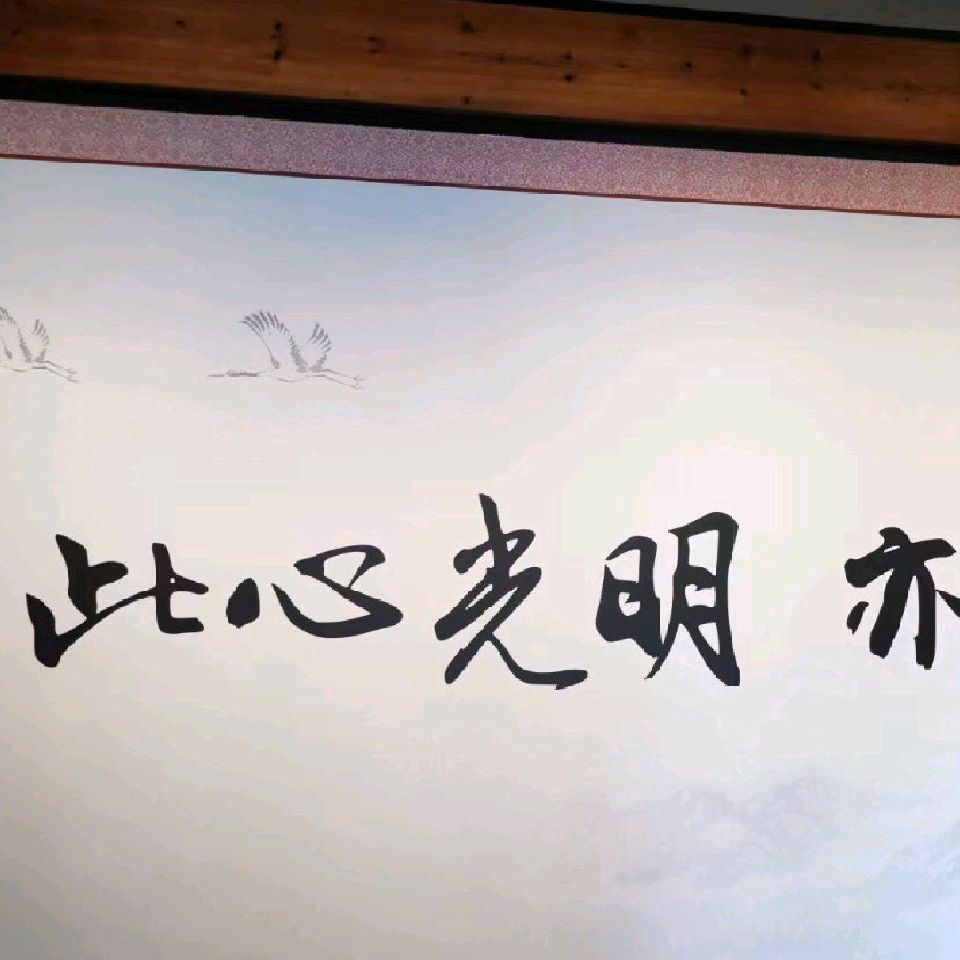 此心光明 亦